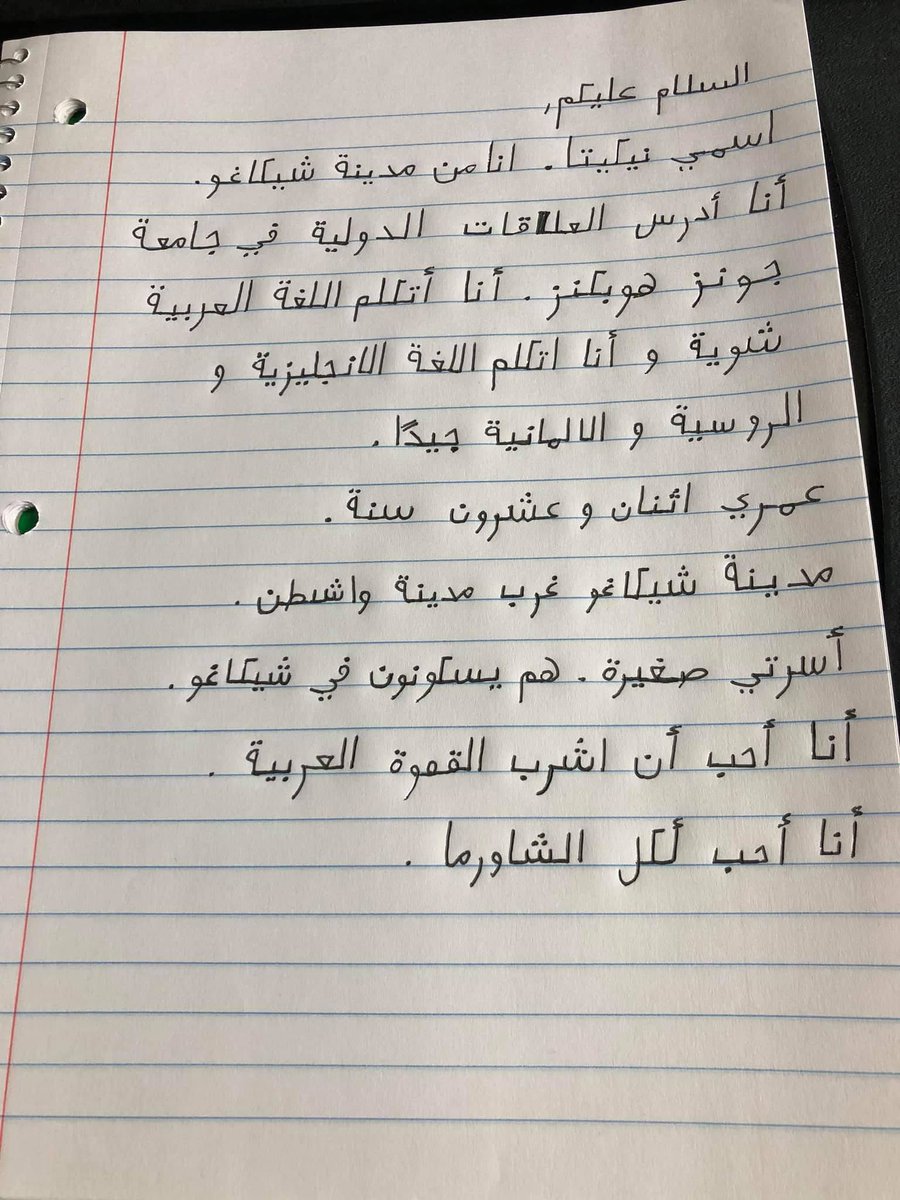 السلام عليكم,
اسمي نيكيتا. انا من مدينة شيكاغو.
أنا أدرس العلاقات الدولية في جامعة
جونز هوبكنز. أنا أتكلم اللغة العربية
شوية و أنا اتكلم اللغة الانجليزية و
الروسية و الالمانية جيدًا.
عمري اثنان و عشرون سنة.
مدينة شيكاغو غرب مدينة واشطن.
أسرتي صغيرة. هم يسكونون في شيكاغو.
أنا أحب أن اشرب القهوة العربية.
أنا أحب أكل الشاورما.